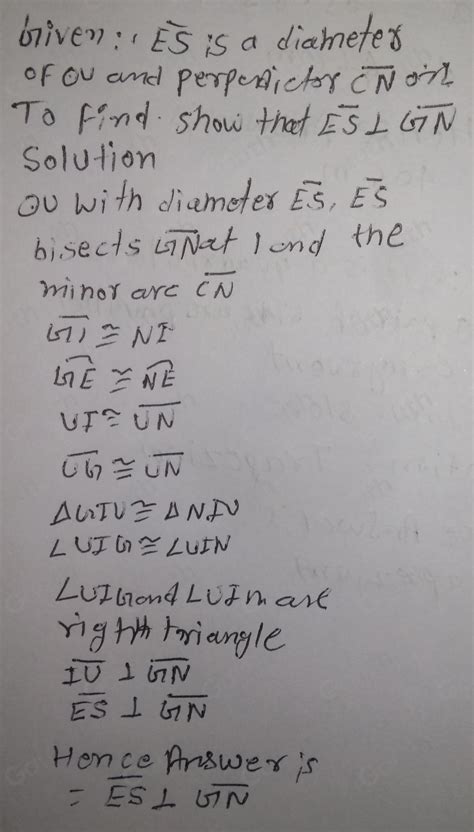 Given: ES is a diameter
of OU and perpendictor CN on
To find. show that ES ⊥ GN
Solution
OU with diameter ES, ES
bisects GN at I and the
minor arc CN
GI ≅ NI
GE ≅ NE
UI ≅ UN
UG ≅ UN
ΔGIU ≅ ΔNIU
∠UIG ≅ ∠UIN
∠UIG and ∠UIM are
right triangle
IU ⊥ GN
ES ⊥ GN
Hence Answer is
= ES ⊥ GN